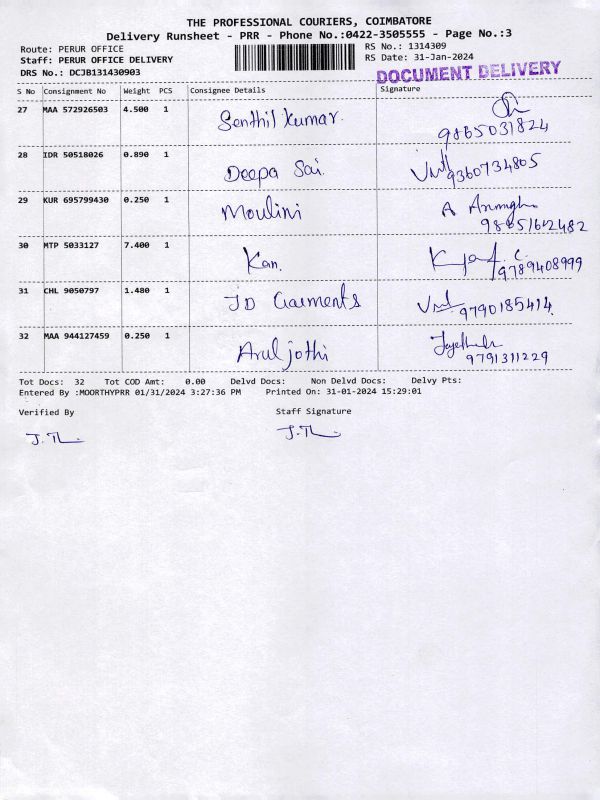 THE PROFESSIONAL COURIERS, COIMBATORE
Delivery Runsheet - PRR - Phone No.:0422-3505555 - Page No.:3
Route: PERUR OFFICE RS No.: 1314309
Staff: PERUR OFFICE DELIVERY RS Date: 31-Jan-2024
DRS No.: DCJB131430903 DOCUMENT DELIVERY
S No Consignment No Weight PCS Consignee Details Signature
27 MAA 572926503 4.500 1 Senthil Kumar. 9865031824
28 IDR 50518026 0.890 1 Deepa Sai. 9360734805
29 KUR 695799430 0.250 1 Moulini A
30 MTP 5033127 7.400 1 Kan. 9789408999
31 CHL 9050797 1.480 1 JD Garments 9790185414
32 MAA 944127459 0.250 1 Aruljothi 9791311229
Tot Docs: 32 Tot COD Amt: 0.00 Delvd Docs: Non Delvd Docs: Delvy Pts:
Entered By :MOORTHYPRR 01/31/2024 3:27:36 PM Printed On: 31-01-2024 15:29:01
Verified By Staff Signature